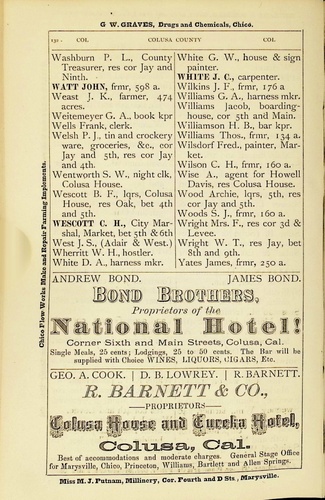 G W. GRAVES, Drugs and Chemicals, Chico.
130 - COL COLUSA COUNTY COL.
Washburn P. L., County
Treasurer, res cor Jay and
Ninth.
WATT JOHN, frmr, 598 a.
Weast J. K., farmer, 474
acres.
Weitemeyer G. A., book kpr
Wells Frank, clerk.
Welsh P. J., tin and crockery
ware, groceries, &c., cor
Jay and 5th, res cor Jay
and 4th.
Wentworth S. W., night clk,
Colusa House.
Wescott B. F., lqrs, Colusa
House, res Oak, bet 4th
and 5th.
WESCOTT C. H., City Mar-
shal, Market, bet 5th & 6th
West J. S., (Adair & West.)
Wherritt W. H., hostler.
White D. A., harness mkr.
White G. W., house & sign
painter.
WHITE J. C., carpenter.
Wilkins J. F., frmr, 176 a
Williams G. A., harness mkr.
Williams Jacob, boarding-
house, cor 5th and Main.
Williamson H. B., bar kpr.
Williams Thos., frmr, 134 a.
Wilsdorf Fred., painter, Mar-
ket.
Wilson C. H., frmr, 160 a.
Wise A., agent for Howell
Davis, res Colusa House.
Wood Archie, lqrs, 5th, res
cor 5th and 5th.
Woods S. J., frmr, 160 a.
Wright Mrs. F., res cor 3d &
Levee.
Wright W. T., res Jay, bet
8th and 9th.
Yates James, frmr, 250 a.
Chico Plow Works Make and Repair Farming Implements.
ANDREW BOND. JAMES BOND.
BOND BROTHERS,
Proprietors of the
National Hotel!
Corner Sixth and Main Streets, Colusa, Cal.
Single Meals, 25 cents; Lodgings, 25 to 50 cents. The Bar will be
supplied with Choice WINES, LIQUORS, CIGARS, Etc.
GEO. A. COOK. | D. B. LOWREY. | R. BARNETT.
R. BARNETT & CO.,
—PROPRIETORS—
Colusa House and Eureka Hotel,
Colusa, Cal.
Best of accommodations and moderate charges. General Stage Office
for Marysville, Chico, Princeton, Williams, Bartlett and Allen Springs.
Miss M. J. Putnam, Millinery, Cor. Fourth and D Sts, Marysville.